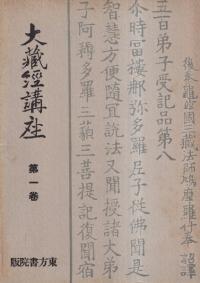 後秦龜茲國三藏法師鳩摩羅什奉 詔譯
五百弟子受記品第八
尒時富樓那弥多羅尼子從佛聞是
智慧方便隨宜説法又聞授諸大弟
子阿耨多羅三藐三菩提記復聞宿
大藏經講座
第一卷
東方書院版